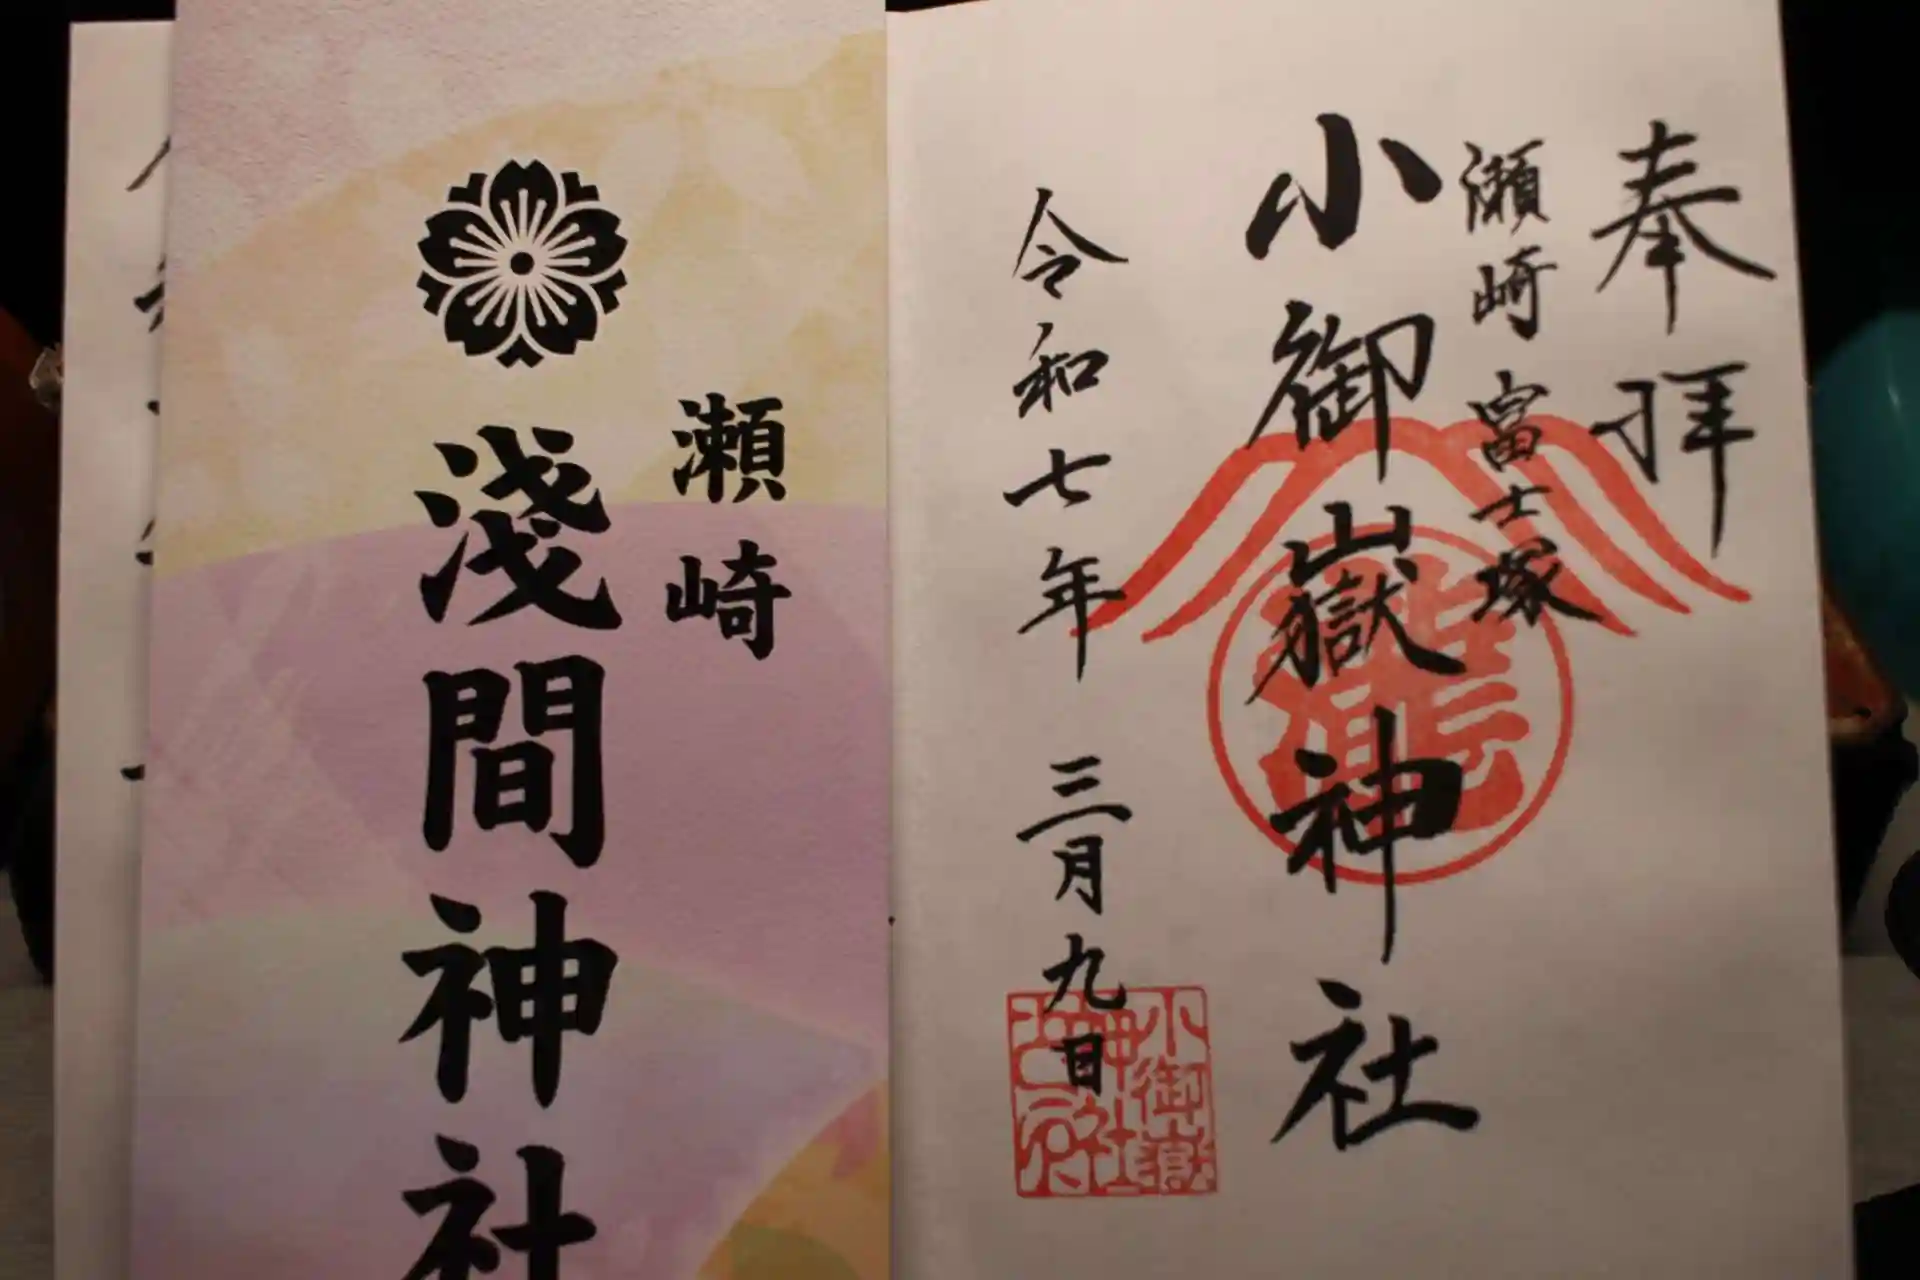 奉拝
瀬崎富士塚
小御嶽神社
令和七年三月九日
小御嶽
神社
瀬崎
淺間神社